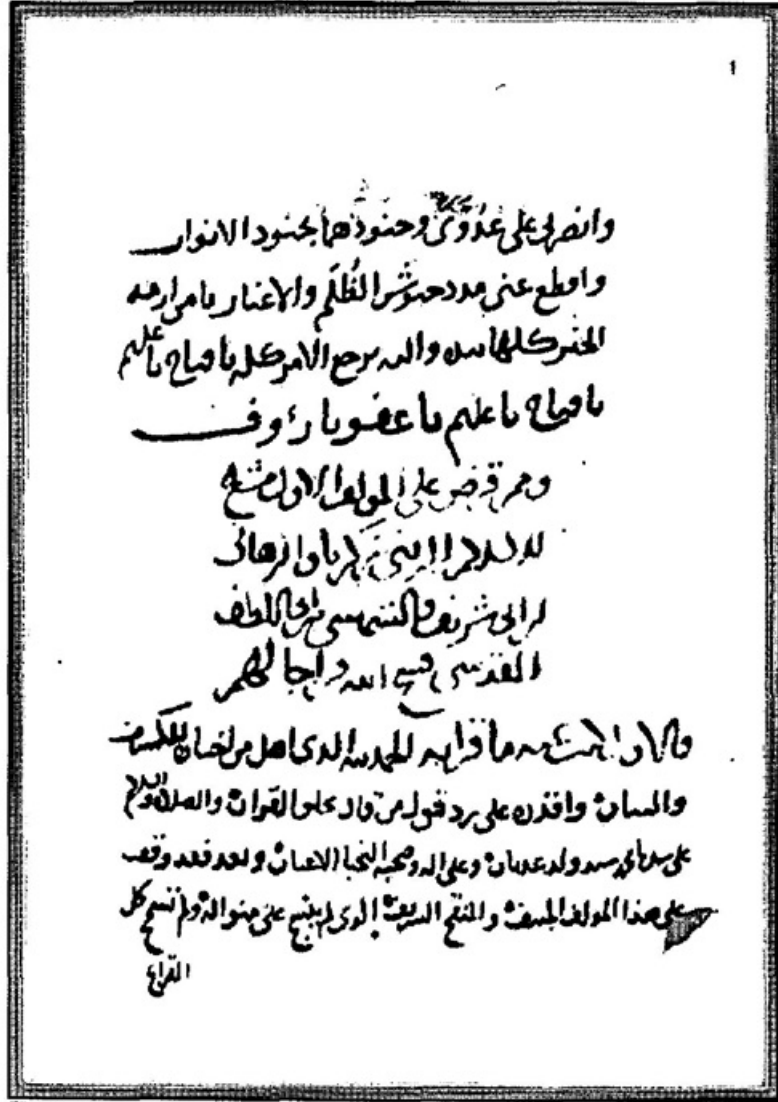 1
وانصرني على عدوى وجنودهما بجنود الانوار
واقطع عني مدد جيوش الظُلَم والاغيار يا من ازمه
الخير كلها بيده واليه يرجع الامر كله يا فتاح يا عليم
يا فتاح يا عليم يا عفو يا رؤوف
وممن قرض على المؤلف الاول شيخ
الاسلام والبرهان
ابن ابي شريف والشمس بن ابي اللطف
المقدسي فسح الله في اجالهم
فالاول ما قرابه الحمد لله الذي اهل من اختار للكشف
والبيان واقدره على رد قول من قال بخلق القران والصلاة والسلام
على سيدنا محمد سيد ولد عدنان وعلى اله وصحبه النجبا الاعيان وبعد فقد وقفت
على هذا المؤلف المنيف والمنقح الشريف الذي لم ينسج على منواله ولم تسمح كل
القرايح